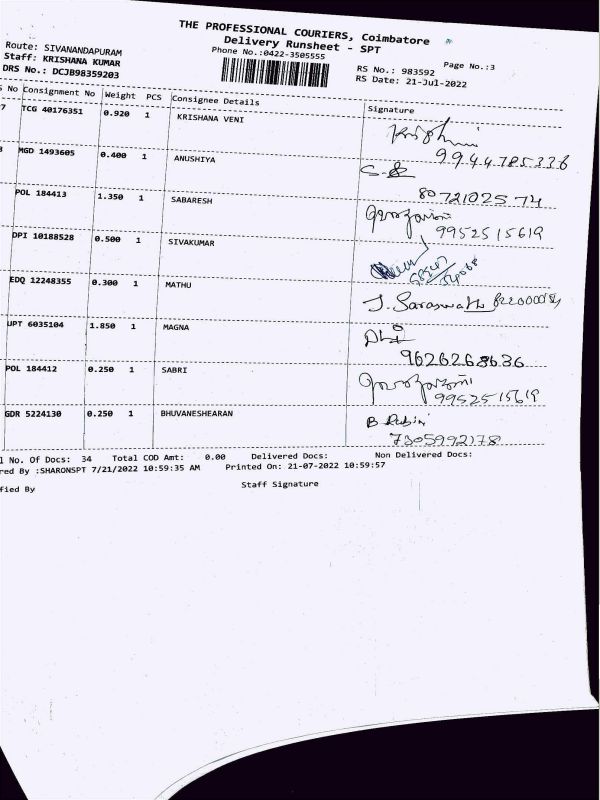 THE PROFESSIONAL COURIERS, Coimbatore
Delivery Runsheet - SPT
Phone No.:0422-3505555
Page No.:3
Route: SIVANANDAPURAM
Staff: KRISHANA KUMAR
DRS No.: DCJB98359203
RS No.: 983592
RS Date: 21-Jul-2022
No Consignment No Weight PCS Consignee Details Signature
7 TCG 40176351 0.920 1 KRISHANA VENI
9944785336
MGD 1493605 0.400 1 ANUSHIYA
8072102574
POL 184413 1.350 1 SABARESH
9952515619
DPI 10188528 0.500 1 SIVAKUMAR
EDQ 12248355 0.300 1 MATHU J. Saraswathi
UPT 6035104 1.850 1 MAGNA
9626268636
POL 184412 0.250 1 SABRI
9952515619
GDR 5224130 0.250 1 BHUVANESHEARAN B Rubini
7305992178
No. Of Docs: 34 Total COD Amt: 0.00 Delivered Docs: Non Delivered Docs:
red By :SHARONSPT 7/21/2022 10:59:35 AM Printed On: 21-07-2022 10:59:57
fied By Staff Signature